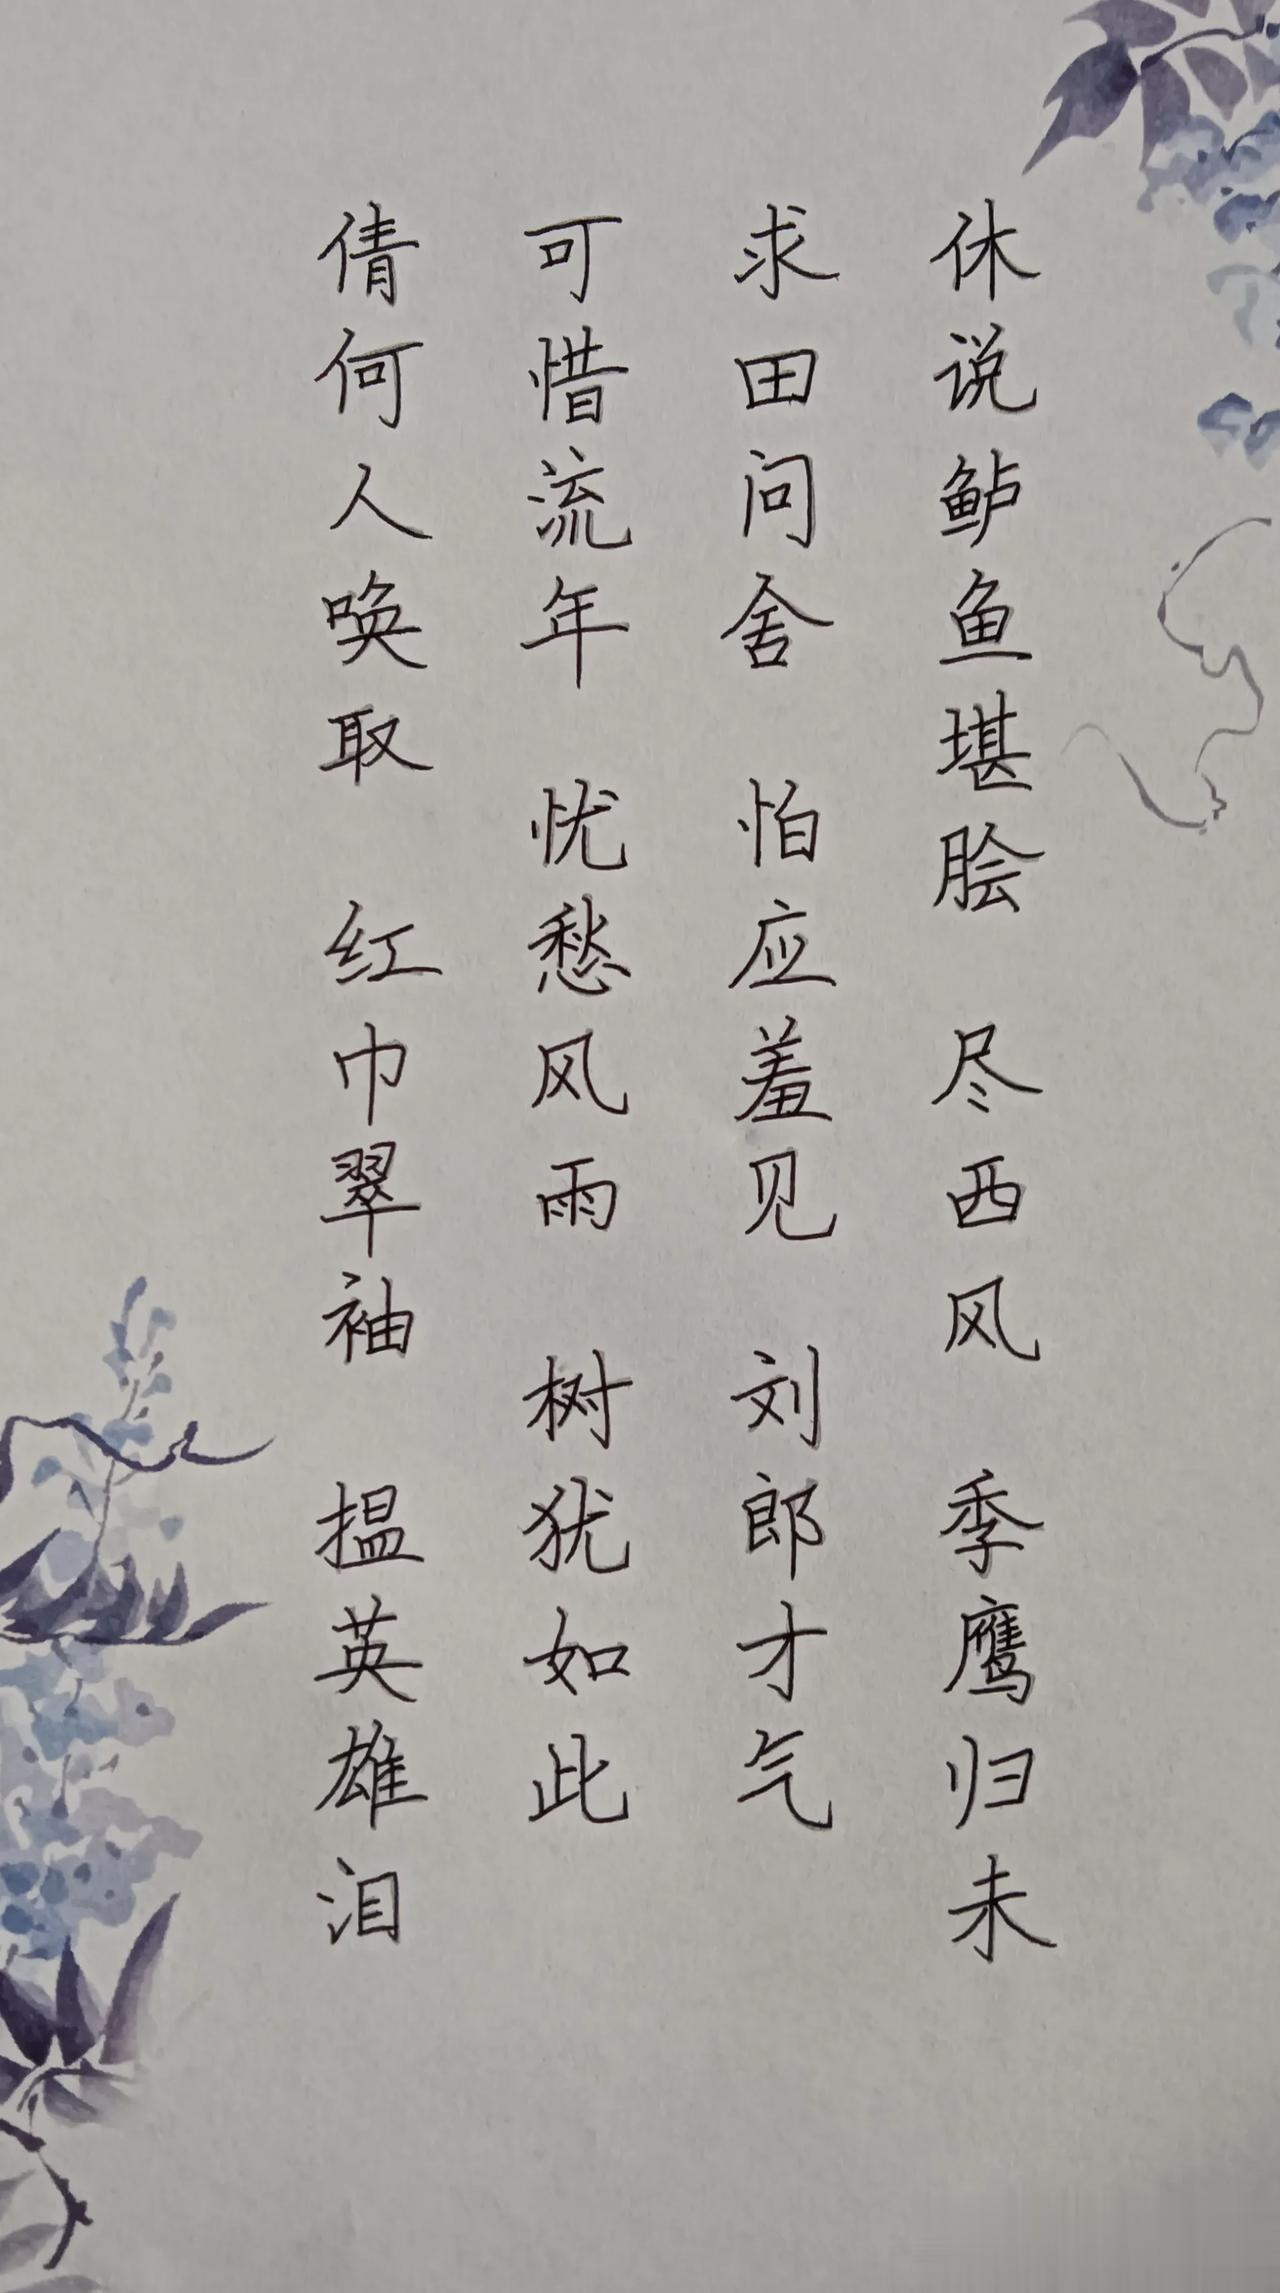 休说鲈鱼堪脍 尽西风 季鹰归未
求田问舍 怕应羞见 刘郎才气
可惜流年 忧愁风雨 树犹如此
倩何人唤取 红巾翠袖 揾英雄泪